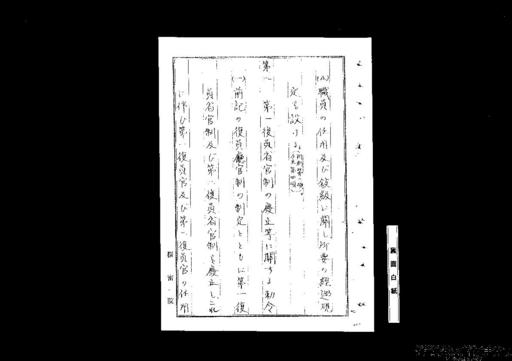 (九)職員の任用及び敍級に関し所要の経過規
定を設ける。
第八 第一復員省官制の廃止等に関する勅令
(一)前記の復員廳官制の制定とともに第一復
員省官制及び第二復員省官制を廃止しこれ
に伴ひ第一復員官及び第二復員官の任用
樞密院
裏面白紙